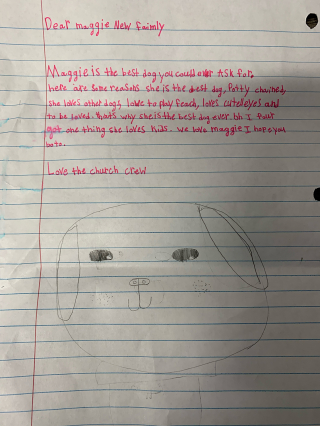 Dear maggie New faimly
Maggie is the best dog you could ever Ask for,
here are some reasons she is the best dog, Potty chained,
she loves other dogs, love to play feach, loves
and
to be loved. thats why she is the best dog ever. oh I four
got one thing she loves kids. we love maggie I hope you
Love the church crew